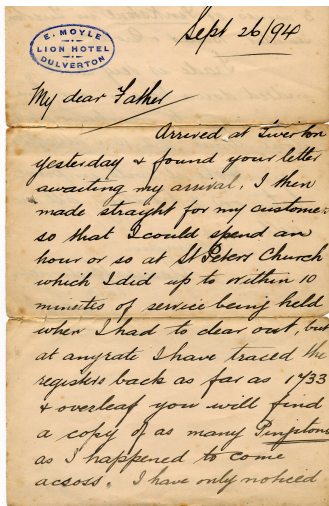 E. MOYLE
LION HOTEL
DULVERTON
Sept 26/94
My dear Father
Arrived at Tiverton
yesterday & found your letter
awaiting my arrival. I then
made straight for my customer
so that I could spend an
hour or so at St Peters Church
which I did up to within 10
minutes of service being held
when I had to clear out, but
at anyrate I have traced the
registers back as far as 1733
& overleaf you will find
a copy of as many Pinfstons
as I happened to come
across. I have only noticed